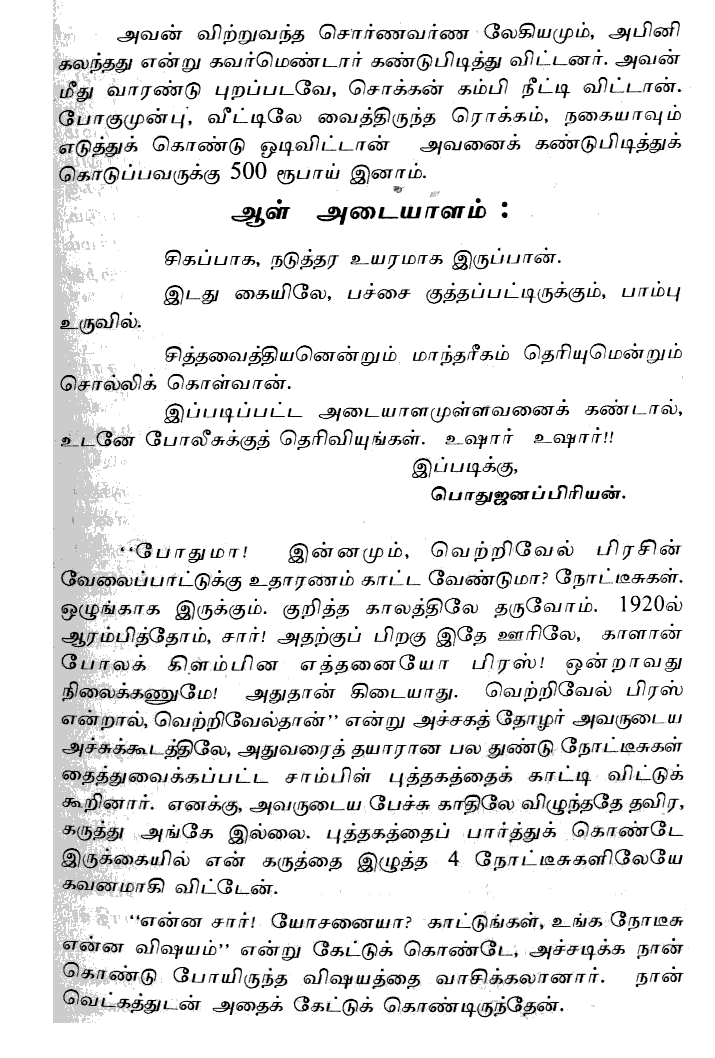 அவன் விற்றுவந்த சொர்ணவர்ண லேகியமும், அபினி
கலந்தது என்று கவர்மெண்டார் கண்டுபிடித்து விட்டனர். அவன்
மீது வாரண்டு புறப்படவே, சொக்கன் கம்பி நீட்டி விட்டான்.
போகுமுன்பு, வீட்டிலே வைத்திருந்த ரொக்கம், நகையாவும்
எடுத்துக் கொண்டு ஒடிவிட்டான் அவனைக் கண்டுபிடித்துக்
கொடுப்பவருக்கு 500 ரூபாய் இனாம்.
ஆள் அடையாளம் :
சிகப்பாக, நடுத்தர உயரமாக இருப்பான்.
இடது கையிலே, பச்சை குத்தப்பட்டிருக்கும், பாம்பு
உருவில்.
சித்தவைத்தியனென்றும் மாந்தரீகம் தெரியுமென்றும்
சொல்லிக் கொள்வான்.
இப்படிப்பட்ட அடையாளமுள்ளவனைக் கண்டால்,
உடனே போலீசுக்குத் தெரிவியுங்கள். உஷார் உஷார்!!
இப்படிக்கு,
பொதுஜனப்பிரியன்.
‘‘போதுமா! இன்னமும், வெற்றிவேல் பிரசின்
வேலைப்பார்ட்டுக்கு உதாரணம் காட்ட வேண்டுமா? நோட்டீசுகள்.
ஒழுங்காக இருக்கும். குறித்த காலத்திலே தருவோம். 1920ல்
ஆரம்பித்தோம், சார்! அதற்குப் பிறகு இதே ஊரிலே, காளான்
போலக் கிளம்பின எத்தனையோ பிரஸ்! ஒன்றாவது
நிலைக்கணுமே! அதுதான் கிடையாது. வெற்றிவேல் பிரஸ்
என்றால், வெற்றிவேல்தான்’’ என்று அச்சகத் தோழர் அவருடைய
அச்சுக்கூடத்திலே, அதுவரைத் தயாரான பல துண்டு நோட்டீசுகள்
தைத்துவைக்கப்பட்ட சாம்பிள் புத்தகத்தைக் காட்டி விட்டுக்
கூறினார். எனக்கு, அவருடைய பேச்சு காதிலே விழுந்ததே தவிர,
கருத்து அங்கே இல்லை. புத்தகத்தைப் பார்த்துக் கொண்டே
இருக்கையில் என் கருத்தை இழுத்த 4 நோட்டீசுகளிலேயே
கவனமாகி விட்டேன்.
‘‘என்ன சார்! யோசனையா? காட்டுங்கள், உங்க நோடீசு
என்ன விஷயம்’’ என்று கேட்டுக் கொண்டே, அச்சடிக்க நான்
கொண்டு போயிருந்த விஷயத்தை வாசிக்கலானார். நான்
வெட்கத்துடன் அதைக் கேட்டுக் கொண்டிருந்தேன்.